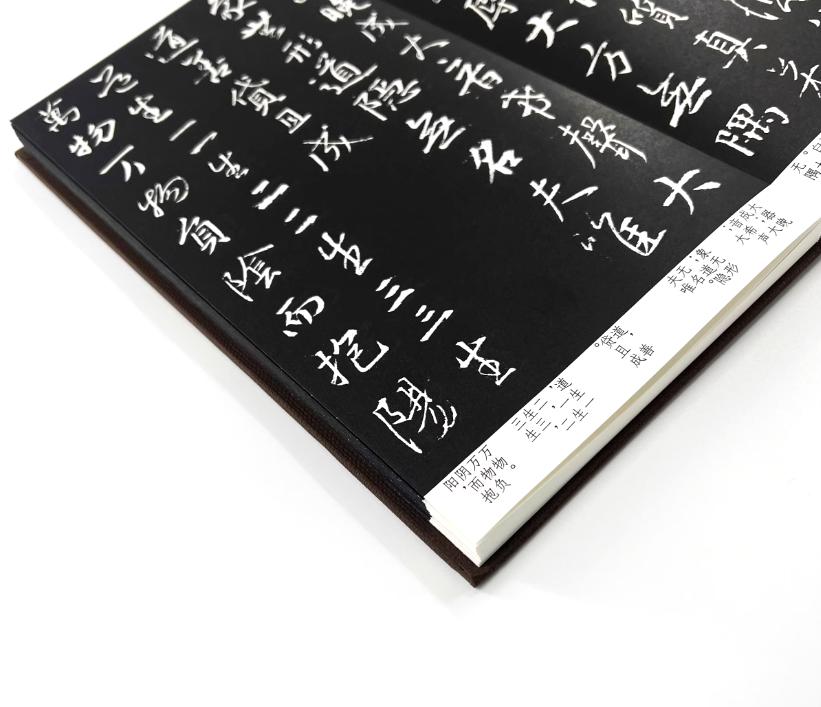 質真
大方無隅大
晚成大音希聲大
形道隱無名夫唯
道善貸且成
道生一一生二二生三三生
萬物万物負陰而抱陽
大器晚
成；大
音希声
象无形
，道隐
无名。
夫唯
道，善
贷且成
。
道生一
，一生二
，二生三
三生
万物。
万物负
阴，而抱
阳